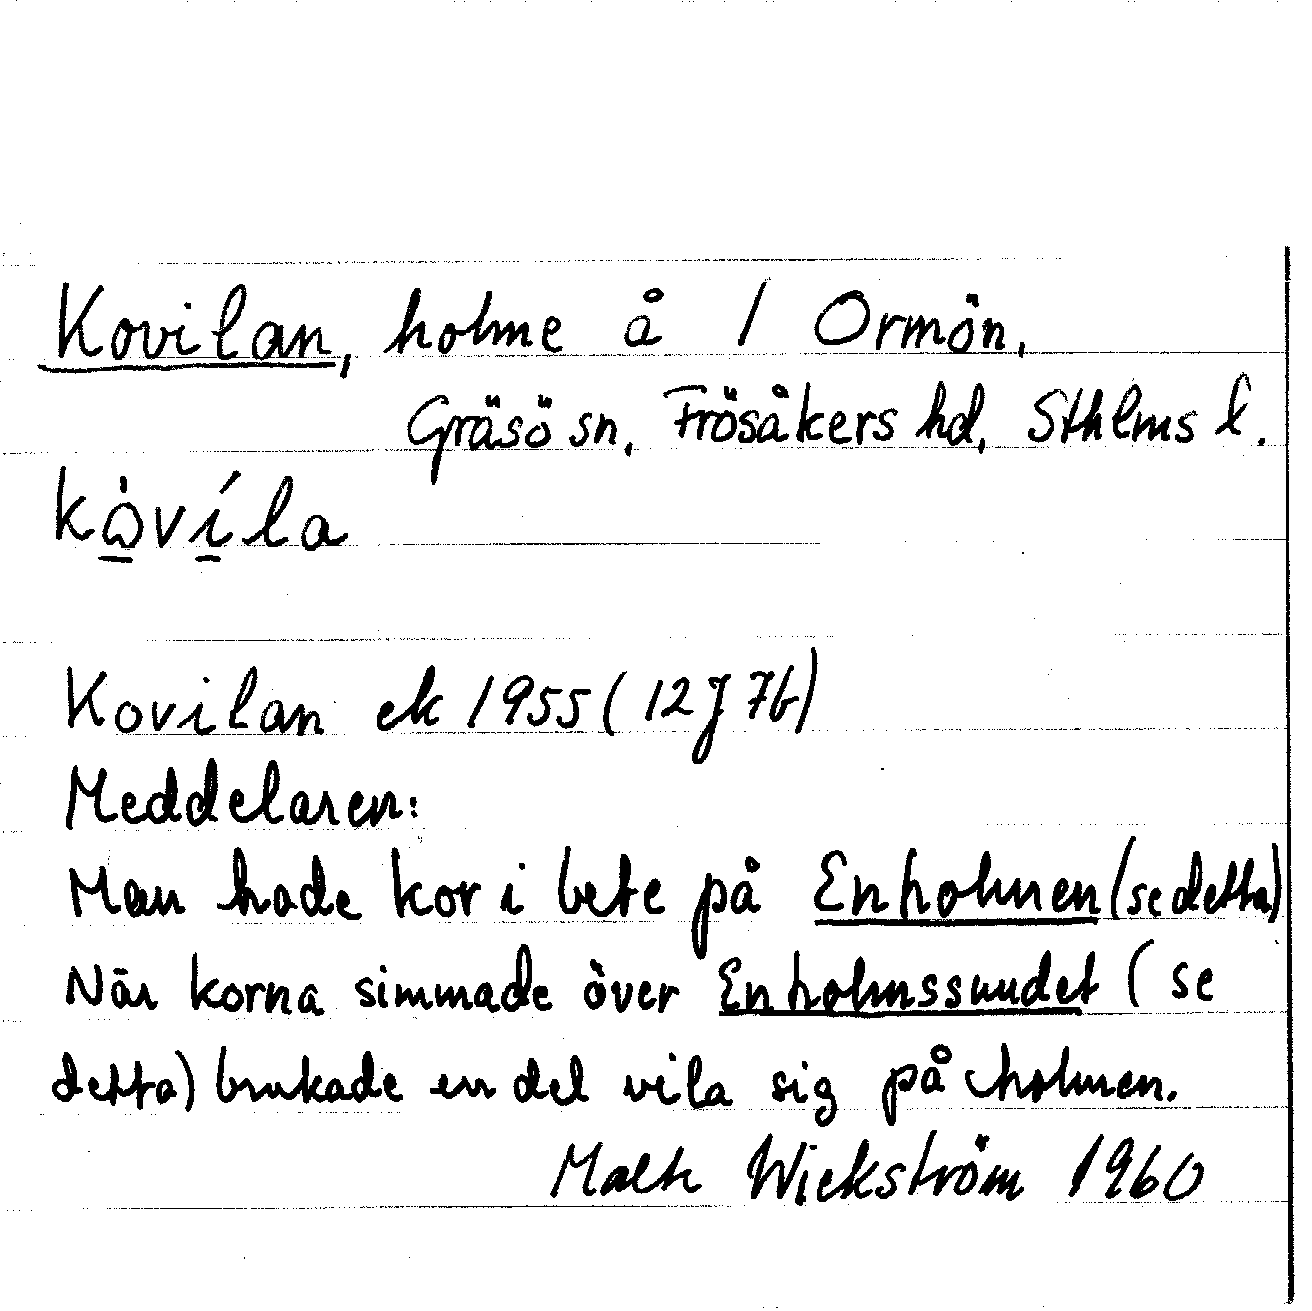 Kovilan, holme å 1 Ormön,
Gräsö sn, Frösåkers hd, Sthlms l.
kὼ̲ví̲la
Kovilan ek 1955 (12J 7b)
Meddelaren:
Man hade kor i bete på Enholmen (se detta)
När korna simmade över Enholmssundet (se
detta) brukade en del vila sig på holmen.
Wickström 1960